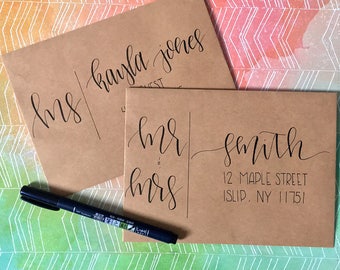 ms
kayla jones
mr
&
mrs
smith
12 MAPLE STREET
ISLIP, NY 11751